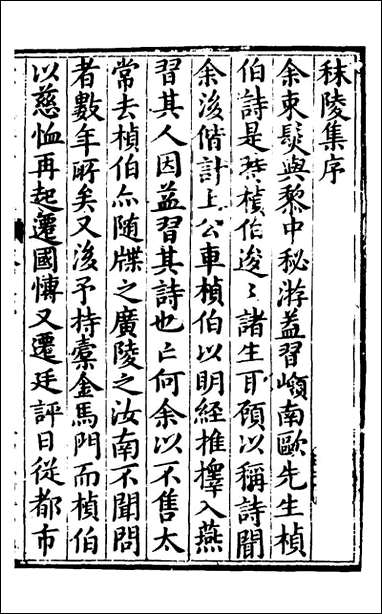 秣陵集序
余束髮與黎中秘游益習嶺南歐先生楨
伯詩是時楨伯逡〻諸生耳顧以稱詩聞
余後偕計上公車楨伯以明經推擇入燕
習其人因益習其詩也亡何余以不售太
常去楨伯亦随牒之廣陵之汝南不聞問
者數年所矣又後予持橐金馬門而楨伯
以慈恤再起遷國慱又遷廷評日從都市